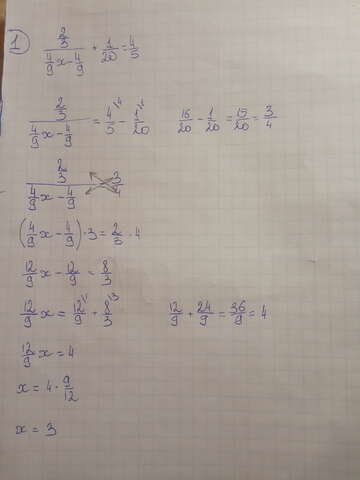 1
(2/3)/(4/9 x - 4/9) + 1/20 = 4/5
(2/3)/(4/9 x - 4/9) = 4/5 \4 - 1/20 \1    16/20 - 1/20 = 15/20 = 3/4
(2/3)/(4/9 x - 4/9)    3/4
(4/9 x - 4/9) · 3 = 2/3 · 4
12/9 x - 12/9 = 8/3
12/9 x = 12/9 \1 + 8/3 \3    12/9 + 24/9 = 36/9 = 4
12/9 x = 4
x = 4 · 9/12
x = 3